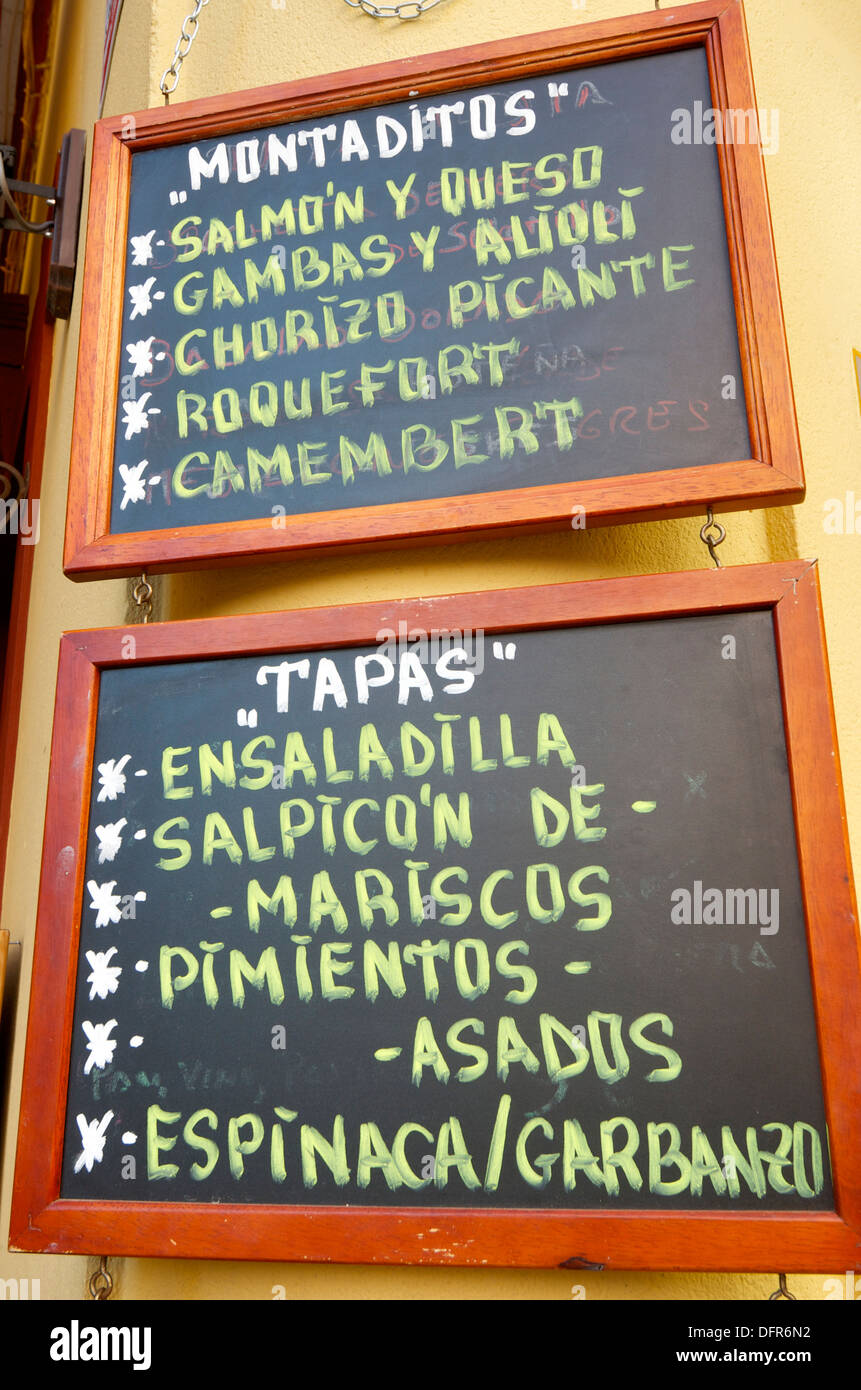 „MONTADITOS"
* SALMO'N Y QUESO
* GAMBAS Y ALIOLI
* CHORIZO PICANTE
* ROQUEFORT
* CAMEMBERT
„TAPAS"
*- ENSALADILLA
*- SALPICO'N DE -
*- - MARISCOS
*- PIMIENTOS -
*- - ASADOS
*- ESPINACA/GARBANZO
alamy
alamy
alamy
Image ID: DFR6N2
www.alamy.com